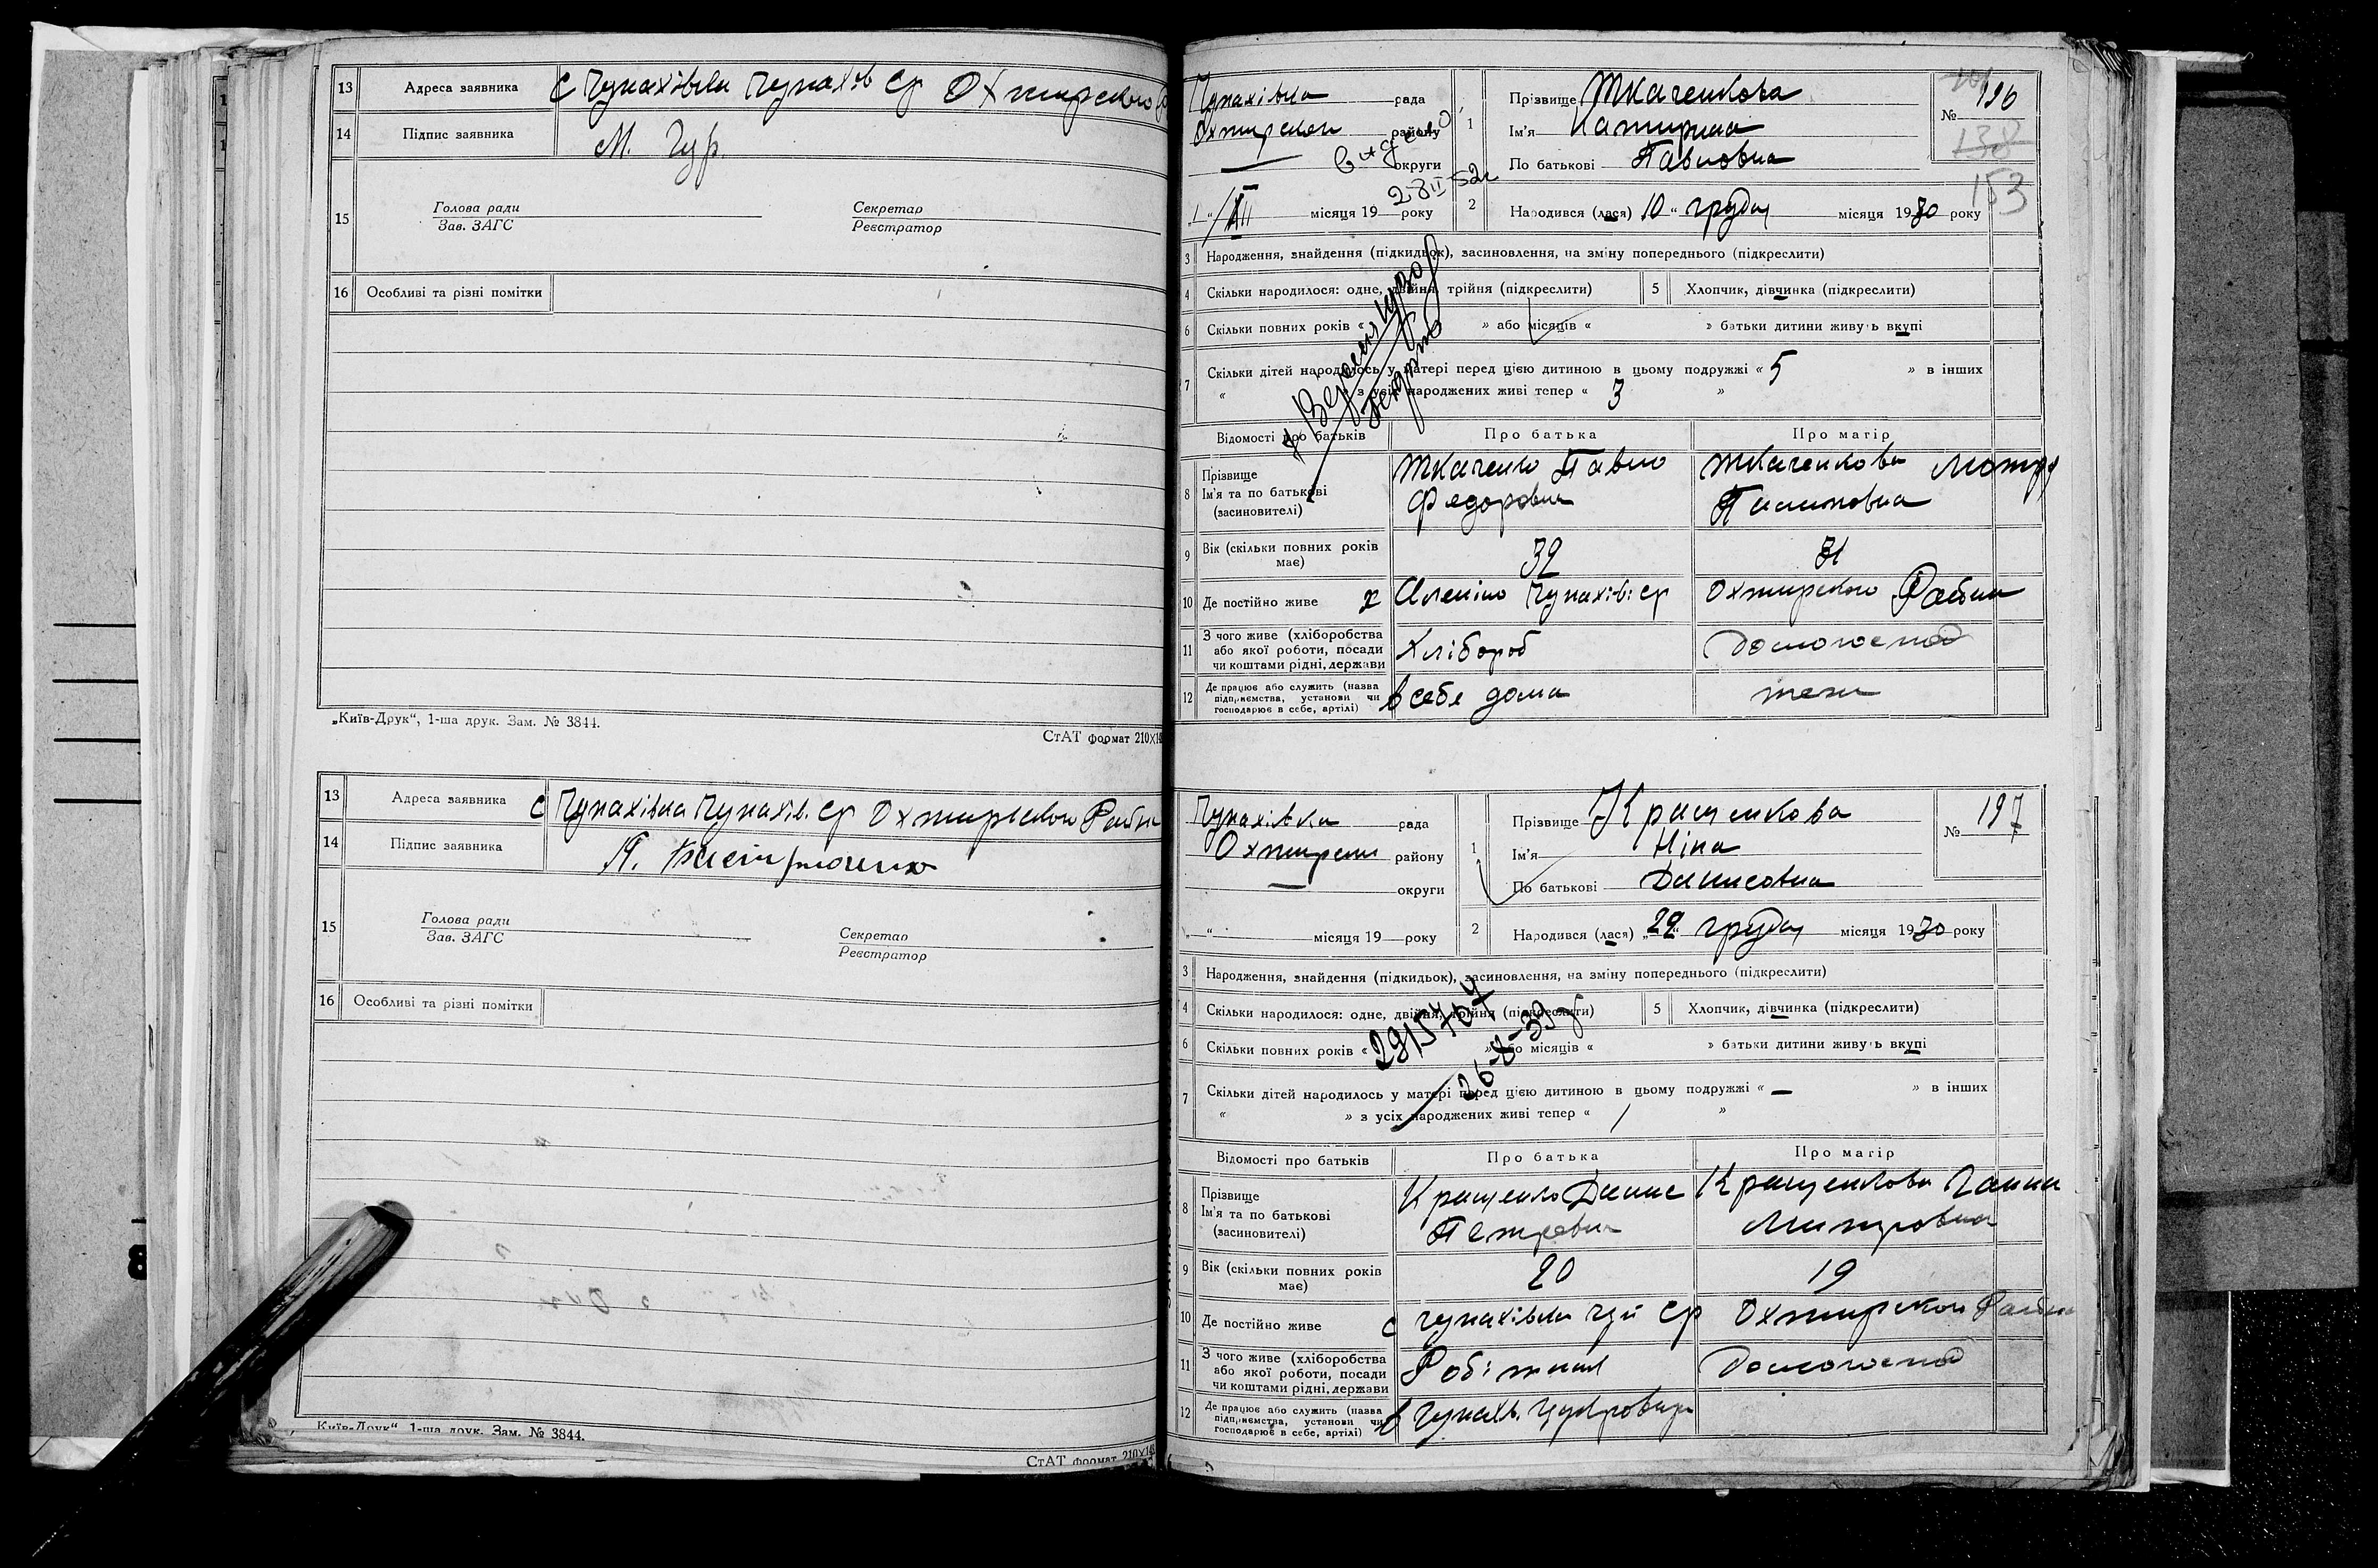 13 Адреса заявника С Чупахівка Чупахів ср Охтирського
14 Підпис заявника М. Чур.
15 Голова ради
Зав. ЗАГС
Секретар
Реєстратор
16 Особливі та різні помітки
„Київ-Друк“, 1-ша друк. Зам. № 3844.
СтАТ формат 210×14
13 Адреса заявника с Чупахівка Чупахів. ср Охтирського Району
14 Підпис заявника
15 Голова ради
Зав. ЗАГС
Секретар
Реєстратор
16 Особливі та різні помітки
Київ-Друк“, 1-ша друк. Зам. № 3844.
СтАТ формат 210×14
Чупахівка рада
Охтирськ району
округи
видано
28 II 52г
„1“ місяця 19 року
1 Прізвище Ткаченкова
Ім'я Катирина
По батькові Павловна
№ 196
138
153
2 Народився (лася) 10 „ грудня місяця 1930 року
3 Народження, знайдення (підкидьок), засиновлення, на зміну попереднього (підкреслити)
4 Скільки народилося: одне, двійня, трійня (підкреслити)
5 Хлопчик, дівчинка (підкреслити)
6 Скільки повних років « » або місяців « » батьки дитини живуть вкупі
7 Скільки дітей народилось у матері перед цією дитиною в цьому подружжі « 5 » в інших
« » з усіх народжених живі тепер « 3 »
Відомості про батьків Про батька Про матір
8 Прізвище
Ім'я та по батькові
(засиновителі)
Ткаченко Павло
Федорович
Ткаченкова Мотря
9 Вік (скільки повних років має) 32 31
10 Де постійно живе х Чупахів: ср Охтирського Району
11 З чого живе (хліборобства або якої роботи, посади чи коштами рідні, держави Хлібороб Домогоспод
12 Де працює або служить (назва підприємства, установи чи господарює в себе, артілі) в себе дома теж
Чупахівка рада
Охтирськ району
округи
„ “ місяця 19 року
1 Прізвище Кращенкова
Ім'я Ніна
По батькові Данисовна
№ 197
2 Народився (лася) „29“ грудня місяця 1930 року
3 Народження, знайдення (підкидьок), засиновлення, на зміну попереднього (підкреслити)
4 Скільки народилося: одне, двійня, трійня (підкреслити)
5 Хлопчик, дівчинка (підкреслити)
2915707
26-8-39
6 Скільки повних років « » або місяців « » батьки дитини живуть вкупі
7 Скільки дітей народилось у матері перед цією дитиною в цьому подружжі « – » в інших
« » з усіх народжених живі тепер « 1 »
Відомості про батьків Про батька Про матір
8 Прізвище
Ім'я та по батькові
(засиновителі)
Кращенко Данис
Петрович
Кращенкова Ганна
Митровна
9 Вік (скільки повних років має) 20 19
10 Де постійно живе с Чупахівка Чуп ср Охтирского Району
11 З чого живе (хліборобства або якої роботи, посади чи коштами рідні, держави Робітник Домогоспод
12 Де працює або служить (назва підприємства, установи чи господарює в себе, артілі) в Чупахів. Цукровар